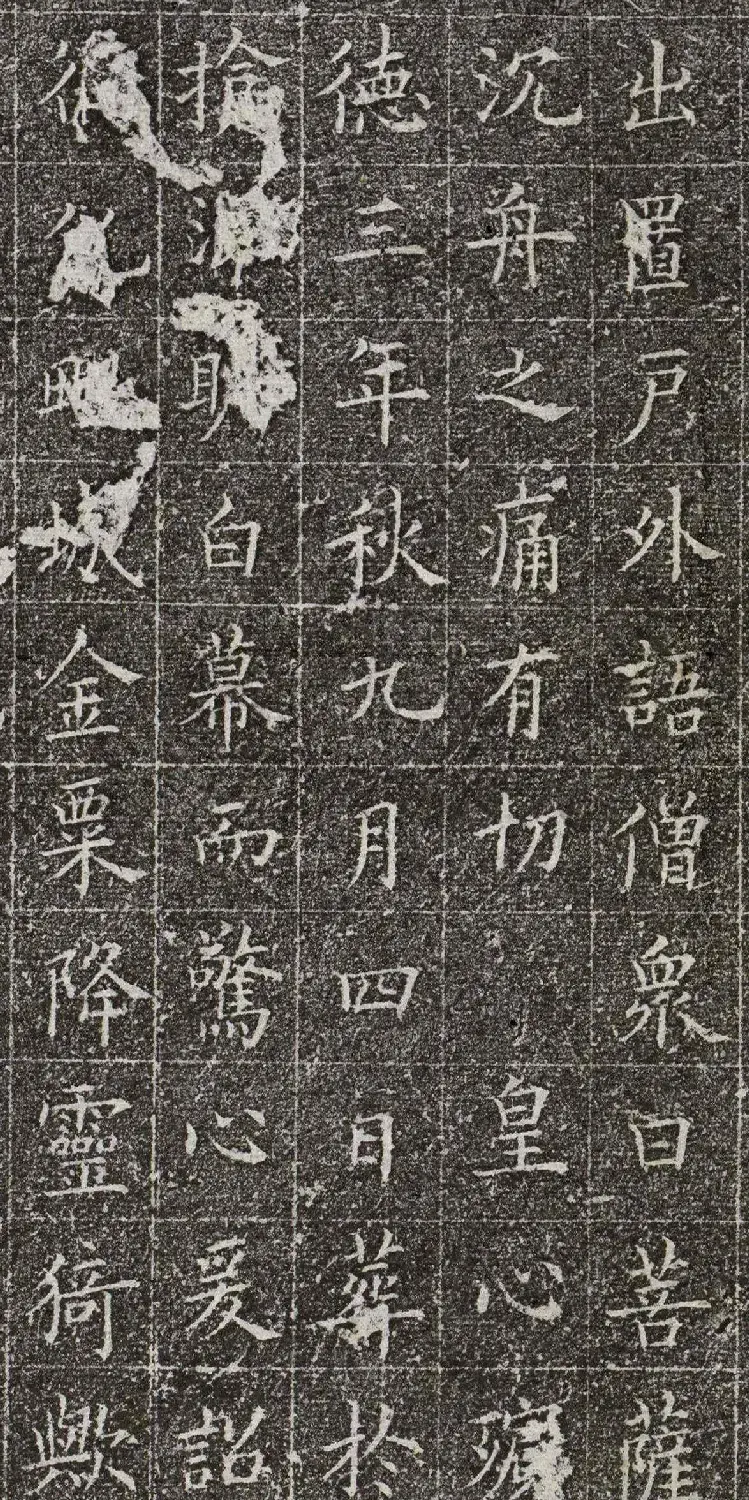 出置戶外語僧眾曰菩薩
沉舟之痛有切 皇心
德三年秋九月四日葬於
白幕而驚心爰詔
城金粟降靈猗歟